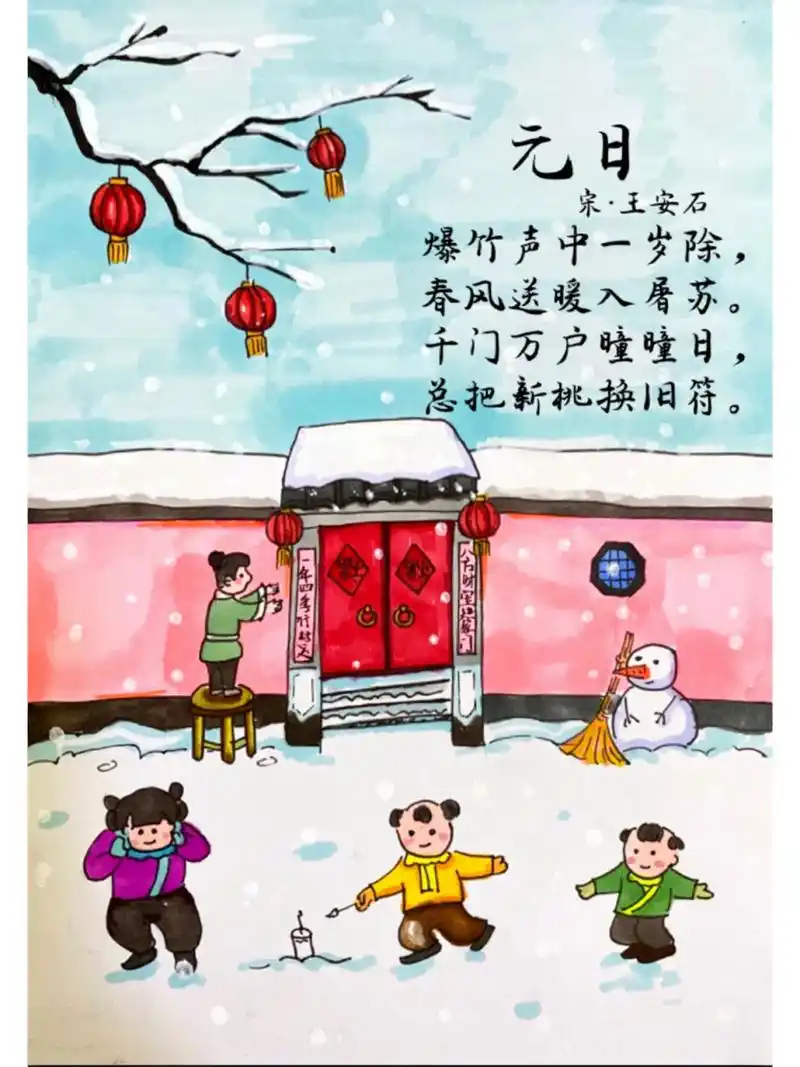 元日
宋·王安石
爆竹声中一岁除，
春风送暖入屠苏。
千门万户曈曈日，
总把新桃换旧符。
福
福
一年四季行好运
八方财宝进家门